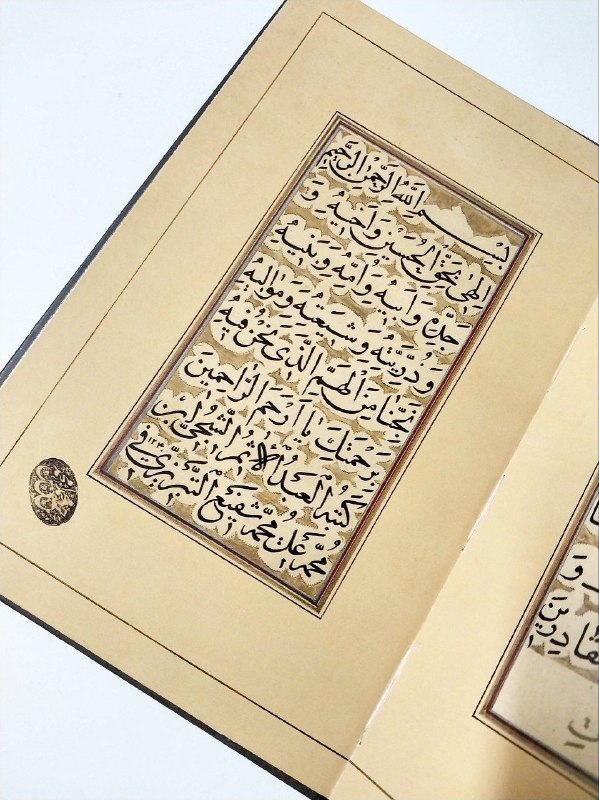 بِسْمِ اللّٰهِ الرَّحْمٰنِ الرَّحِيمِ
الٰهِى بِحَقِّ الْحُسَيْنِ وَاَخِيهِ وَ
جَدِّهِ وَاَبِيهِ وَاُمِّهِ وَبَنِيهِ
وَذُرِّيَّتِهِ وَشِيعَتِهِ وَمَوَالِيهِ
نَجِّنَا مِنَ الْهَمِّ الَّذِى نَحْنُ فِيهِ
بِرَحْمَتِكَ يَا اَرْحَمَ الرَّاحِمِينَ
كَتَبَهُ الْعَبْدُ الْاَثِمُ ابن
مُحَمَّد عَلى مُحَمَّد شَفِيع التَّبْرِيزِى فى
وَ
قَادِرِينَ